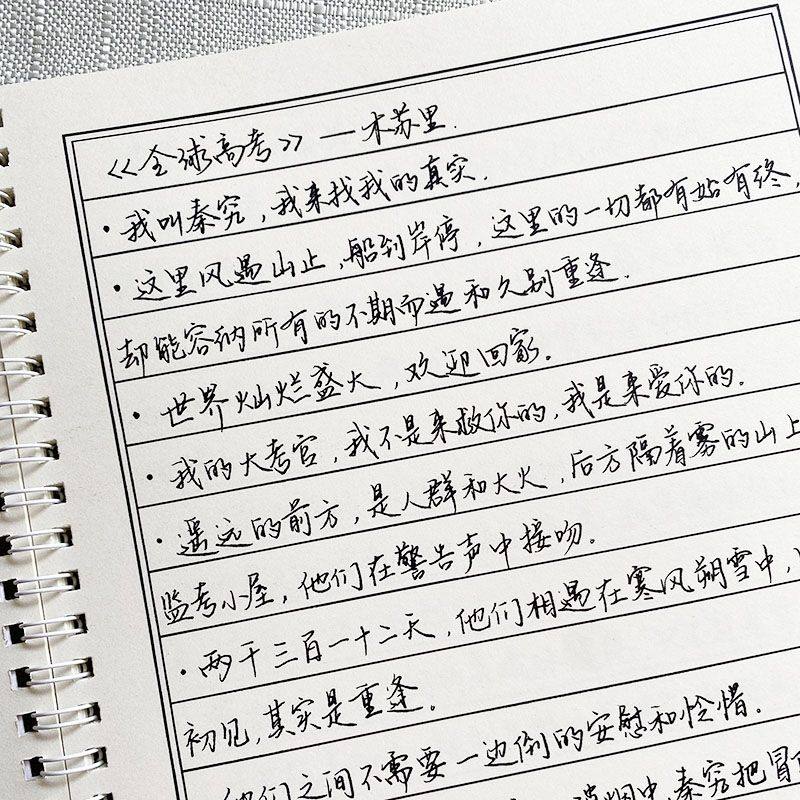 《全球高考》—木苏里.
·我叫秦究,我来找我的真实.
·这里风遇山止,船到岸停,这里的一切都有始有终,
却能容纳所有的不期而遇和久别重逢.
·世界灿烂盛大,欢迎回家.
·我的大考官,我不是来救你的,我是来爱你的.
·遥远的前方,是人群和大火,后方隔着雾的山上
监考小屋,他们在警告声中接吻。
·两千三百一十二天,他们相遇在寒风朔雪中,
初见,其实是重逢。
他们之间不需要一边倒的安慰和怜惜.
中,秦究把冒